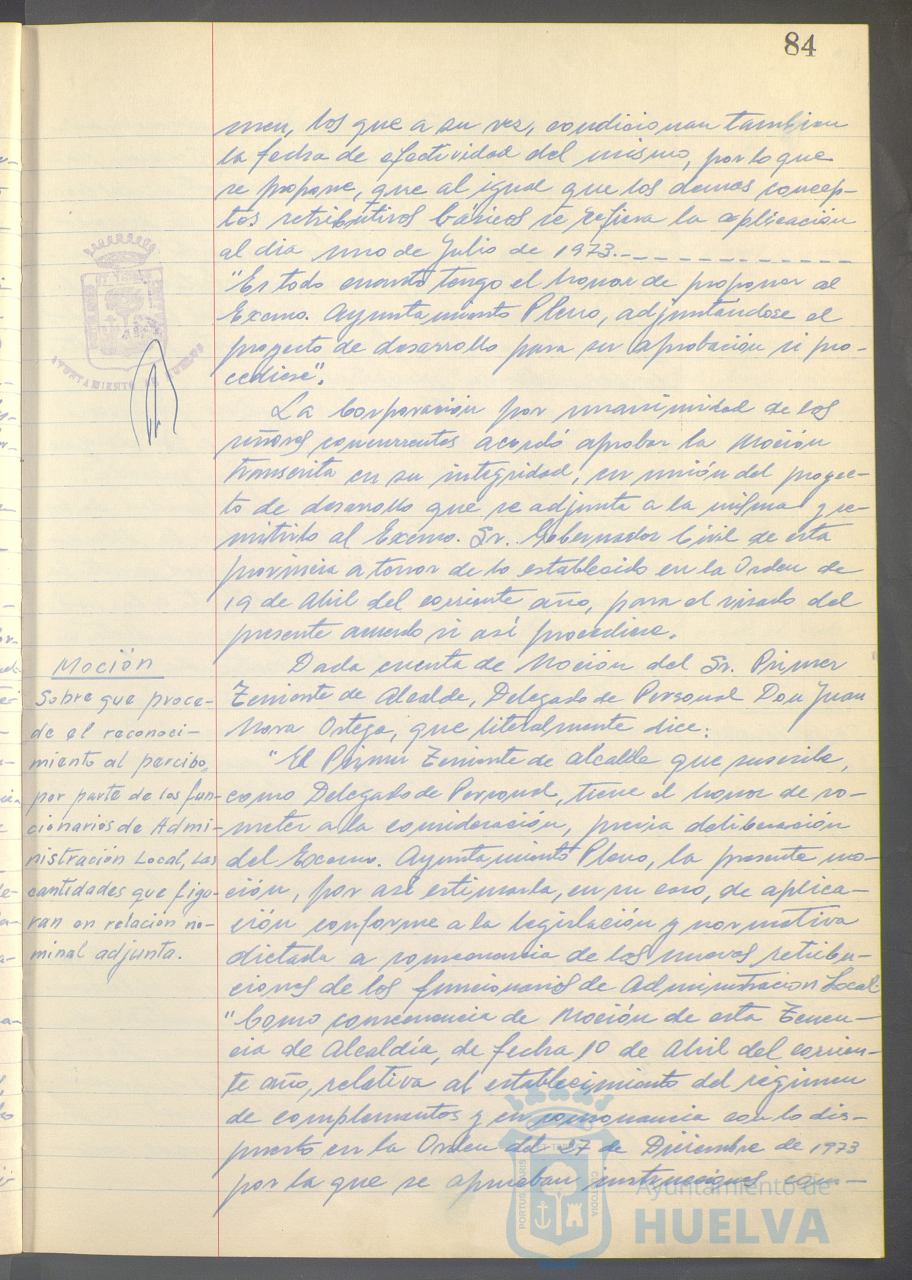 84
men, los que a su vez, condicionan tambien
la fecha de efectividad del mismo, por lo que
se propone, que al igual que los demas concep-
tos retributivos básicos se refiera la aplicación
al dia uno de Julio de 1973.-
"Es todo cuanto tengo el honor de proponer al
Excmo. Ayuntamiento Pleno, adjuntándose el
proyecto de desarrollo para su aprobacion si pro-
cediese".
La Corporación por unanimidad de los
señores concurrentes acordó aprobar la Moción
transcrita en su integridad, en unión del proyec-
to de desarrollo que se adjunta a la misma y re-
mitirlo al Excmo. Sr. Gobernador Civil de esta
provincia a tenor de lo establecido en la Orden de
19 de Abril del corriente año, para el visado del
presente acuerdo si así procediera.
Moción
Sobre que proce-
de el reconoci-
miento al percibo,
por parte de los fun-
cionarios de Admi-
nistración Local, las
cantidades que figu-
ran en relación no-
minal adjunta.
Dada cuenta de Moción del Sr. Primer
Teniente de Alcalde, Delegado de Personal Don Juan
Mora Ortega, que literalmente dice:
"El Primer Teniente de Alcalde que suscribe,
como Delegado de Personal, tiene el honor de so-
meter a la consideración, previa deliberación
del Excmo. Ayuntamiento Pleno, la presente mo-
ción, por así estimarla, en su caso, de aplica-
ción conforme a la legislación y normativa
dictada a consecuencia de las nuevas retribu-
ciones de los funcionarios de Administracion Local.
"Como consecuencia de Moción de esta Tenen-
cia de Alcaldía, de fecha 10 de Abril del corrien-
te año, relativa al establecimiento del régimen
de complementos y en consonancia con lo dis-
puesto en la Orden del 27 de Diciembre de 1973
por la que se aprueban instrucciones com-
AYUNTAMIENTO DE HUELVA
PORTUS MARIS
CUSTODIA
Ayuntamiento de
HUELVA